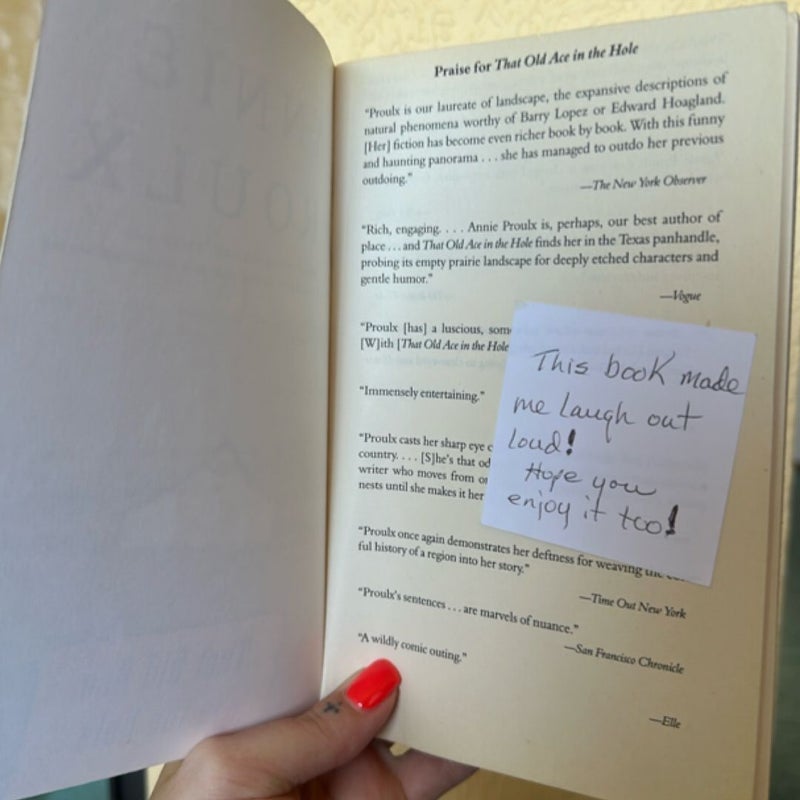 Praise for That Old Ace in the Hole
"Proulx is our laureate of landscape, the expansive descriptions of
natural phenomena worthy of Barry Lopez or Edward Hoagland.
[Her] fiction has become even richer book by book. With this funny
and haunting panorama . . . she has managed to outdo her previous
outdoing."
—The New York Observer
"Rich, engaging. . . . Annie Proulx is, perhaps, our best author of
place . . . and That Old Ace in the Hole finds her in the Texas panhandle,
probing its empty prairie landscape for deeply etched characters and
gentle humor."
—Vogue
"Proulx [has] a luscious,
[W]ith [That Old Ace in the Hole
"Immensely entertaining."
"Proulx casts her sharp eye
country. . . . [S]he's that
writer who moves from
nests until she makes it her
This book made
me laugh out
loud!
Hope you
enjoy it too!
"Proulx once again demonstrates her deftness for weaving the
ful history of a region into her story."
—Time Out New York
"Proulx's sentences . . . are marvels of nuance."
—San Francisco Chronicle
"A wildly comic outing."
—Elle